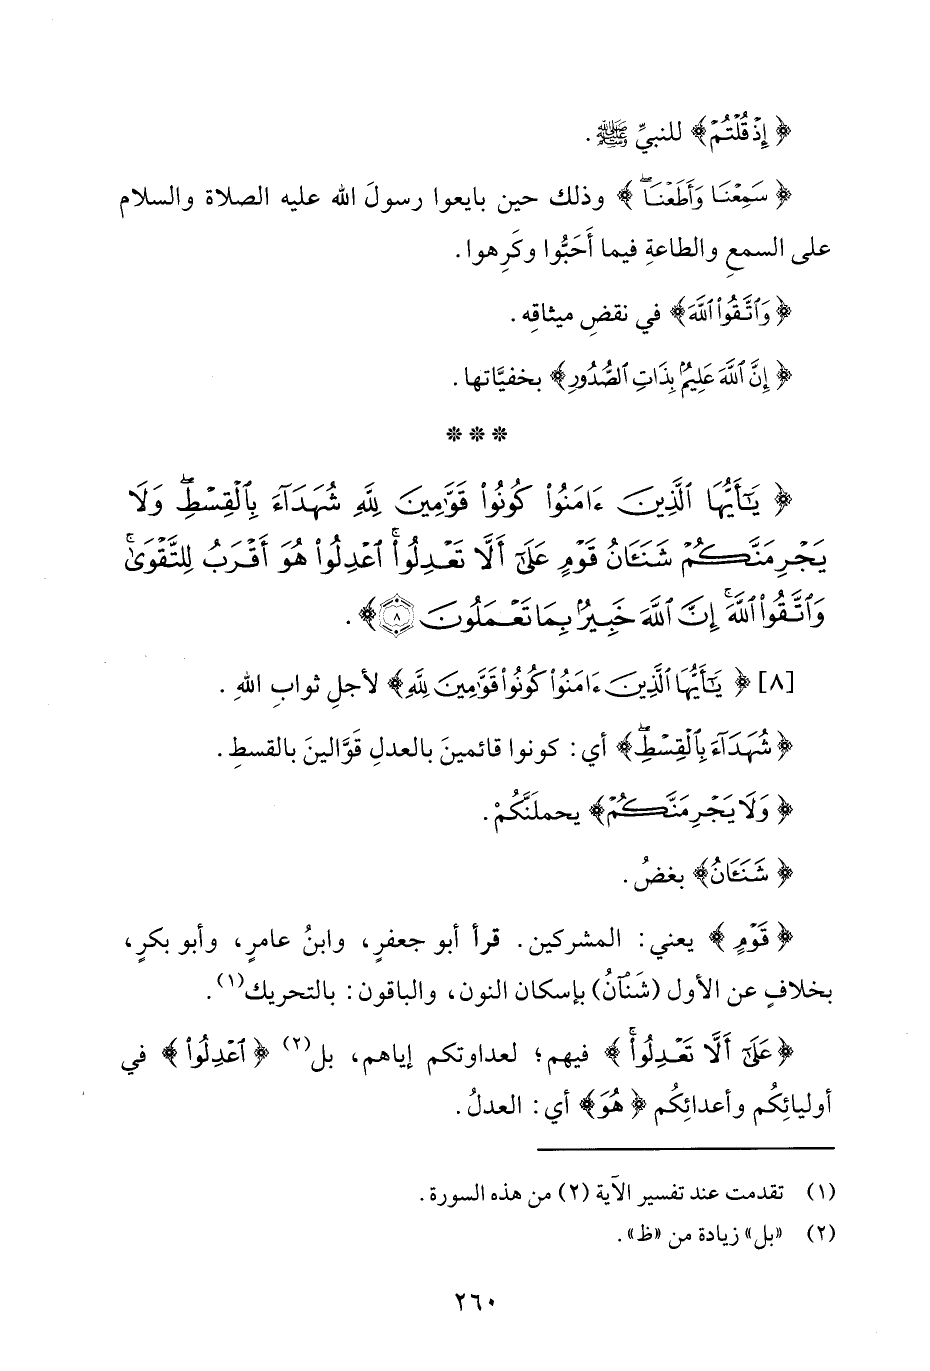 ﴿ إِذْ قُلْتُمْ﴾ للنبيِّ ﷺ .
﴿ سَمِعْنَا وَأَطَعْنَاۖ ﴾ وذلك حين بايعوا رسولَ الله عليه الصلاة والسلام
على السمعِ والطاعةِ فيما أَحَبُّوا وكَرِهوا .
﴿ وَاتَّقُواْ اللَّهَ﴾ في نقضِ ميثاقِه .
﴿ إِنَّ اللَّهَ عَلِيمُۢ بِذَاتِ الصُّدُورِ﴾ بخفيَّاتها .
* * *
﴿ يَٰٓأَيُّهَا ٱلَّذِينَ ءَامَنُواْ كُونُواْ قَوَّٰمِينَ لِلَّهِ شُهَدَآءَ بِٱلْقِسْطِۖ وَلَا
يَجْرِمَنَّكُمْ شَنَـَٔانُ قَوْمٍ عَلَىٰٓ أَلَّا تَعْدِلُواْۚ ٱعْدِلُواْ هُوَ أَقْرَبُ لِلتَّقْوَىٰۖ
وَٱتَّقُواْ ٱللَّهَۚ إِنَّ ٱللَّهَ خَبِيرُۢ بِمَا تَعْمَلُونَ ٨﴾ .
[٨] ﴿ يَٰٓأَيُّهَا ٱلَّذِينَ ءَامَنُواْ كُونُواْ قَوَّٰمِينَ لِلَّهِ﴾ لأجلِ ثوابِ اللهِ .
﴿ شُهَدَآءَ بِٱلْقِسْطِۖ﴾ أي: كونوا قائمينَ بالعدلِ قَوَّالينَ بالقسطِ .
﴿ وَلَا يَجْرِمَنَّكُمْ﴾ يحملَنَّكُمْ .
﴿ شَنَـَٔانُ﴾ بغضُ .
﴿ قَوْمٍ ﴾ يعني: المشركين. قرأ أبو جعفرٍ، وابنُ عامرٍ، وأبو بكرٍ،
بخلافٍ عن الأول (شَنْآنُ) بإسكان النون، والباقون: بالتحريك(١) .
﴿ عَلَىٰٓ أَلَّا تَعْدِلُواْۚ ﴾ فيهم؛ لعداوتكم إياهم، بل(٢) ﴿ ٱعْدِلُواْ ﴾ في
أوليائِكُم وأعدائِكُم ﴿ هُوَ﴾ أي: العدلُ .
(١) تقدمت عند تفسير الآية (٢) من هذه السورة .
(٢) «بل» زيادة من «ظ» .
٢٦٠